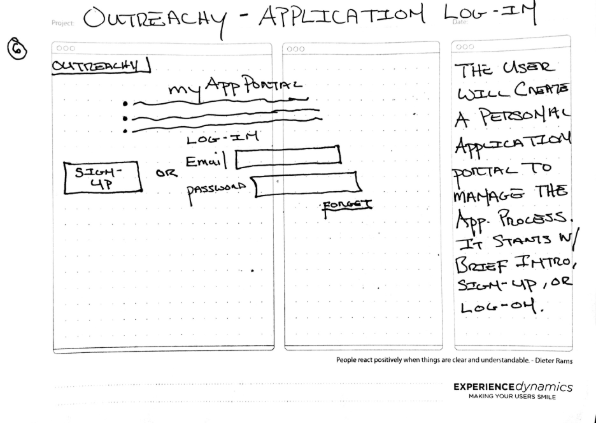 Project:
OUTREACHY - APPLICATION LOG-IN
Date:
6
OUTREACHY
my App PORTAL
LOG-IN
SIGN-
UP
OR
Email
PASSWORD
FORGET
THE USER
WILL CREATE
A PERSONAL
APPLICATION
PORTAL TO
MANAGE THE
App. PROCESS.
IT STARTS W/
BRIEF INTRO,
SIGN-UP, OR
LOG-ON.
People react positively when things are clear and understandable. - Dieter Rams
EXPERIENCEdynamics
MAKING YOUR USERS SMILE